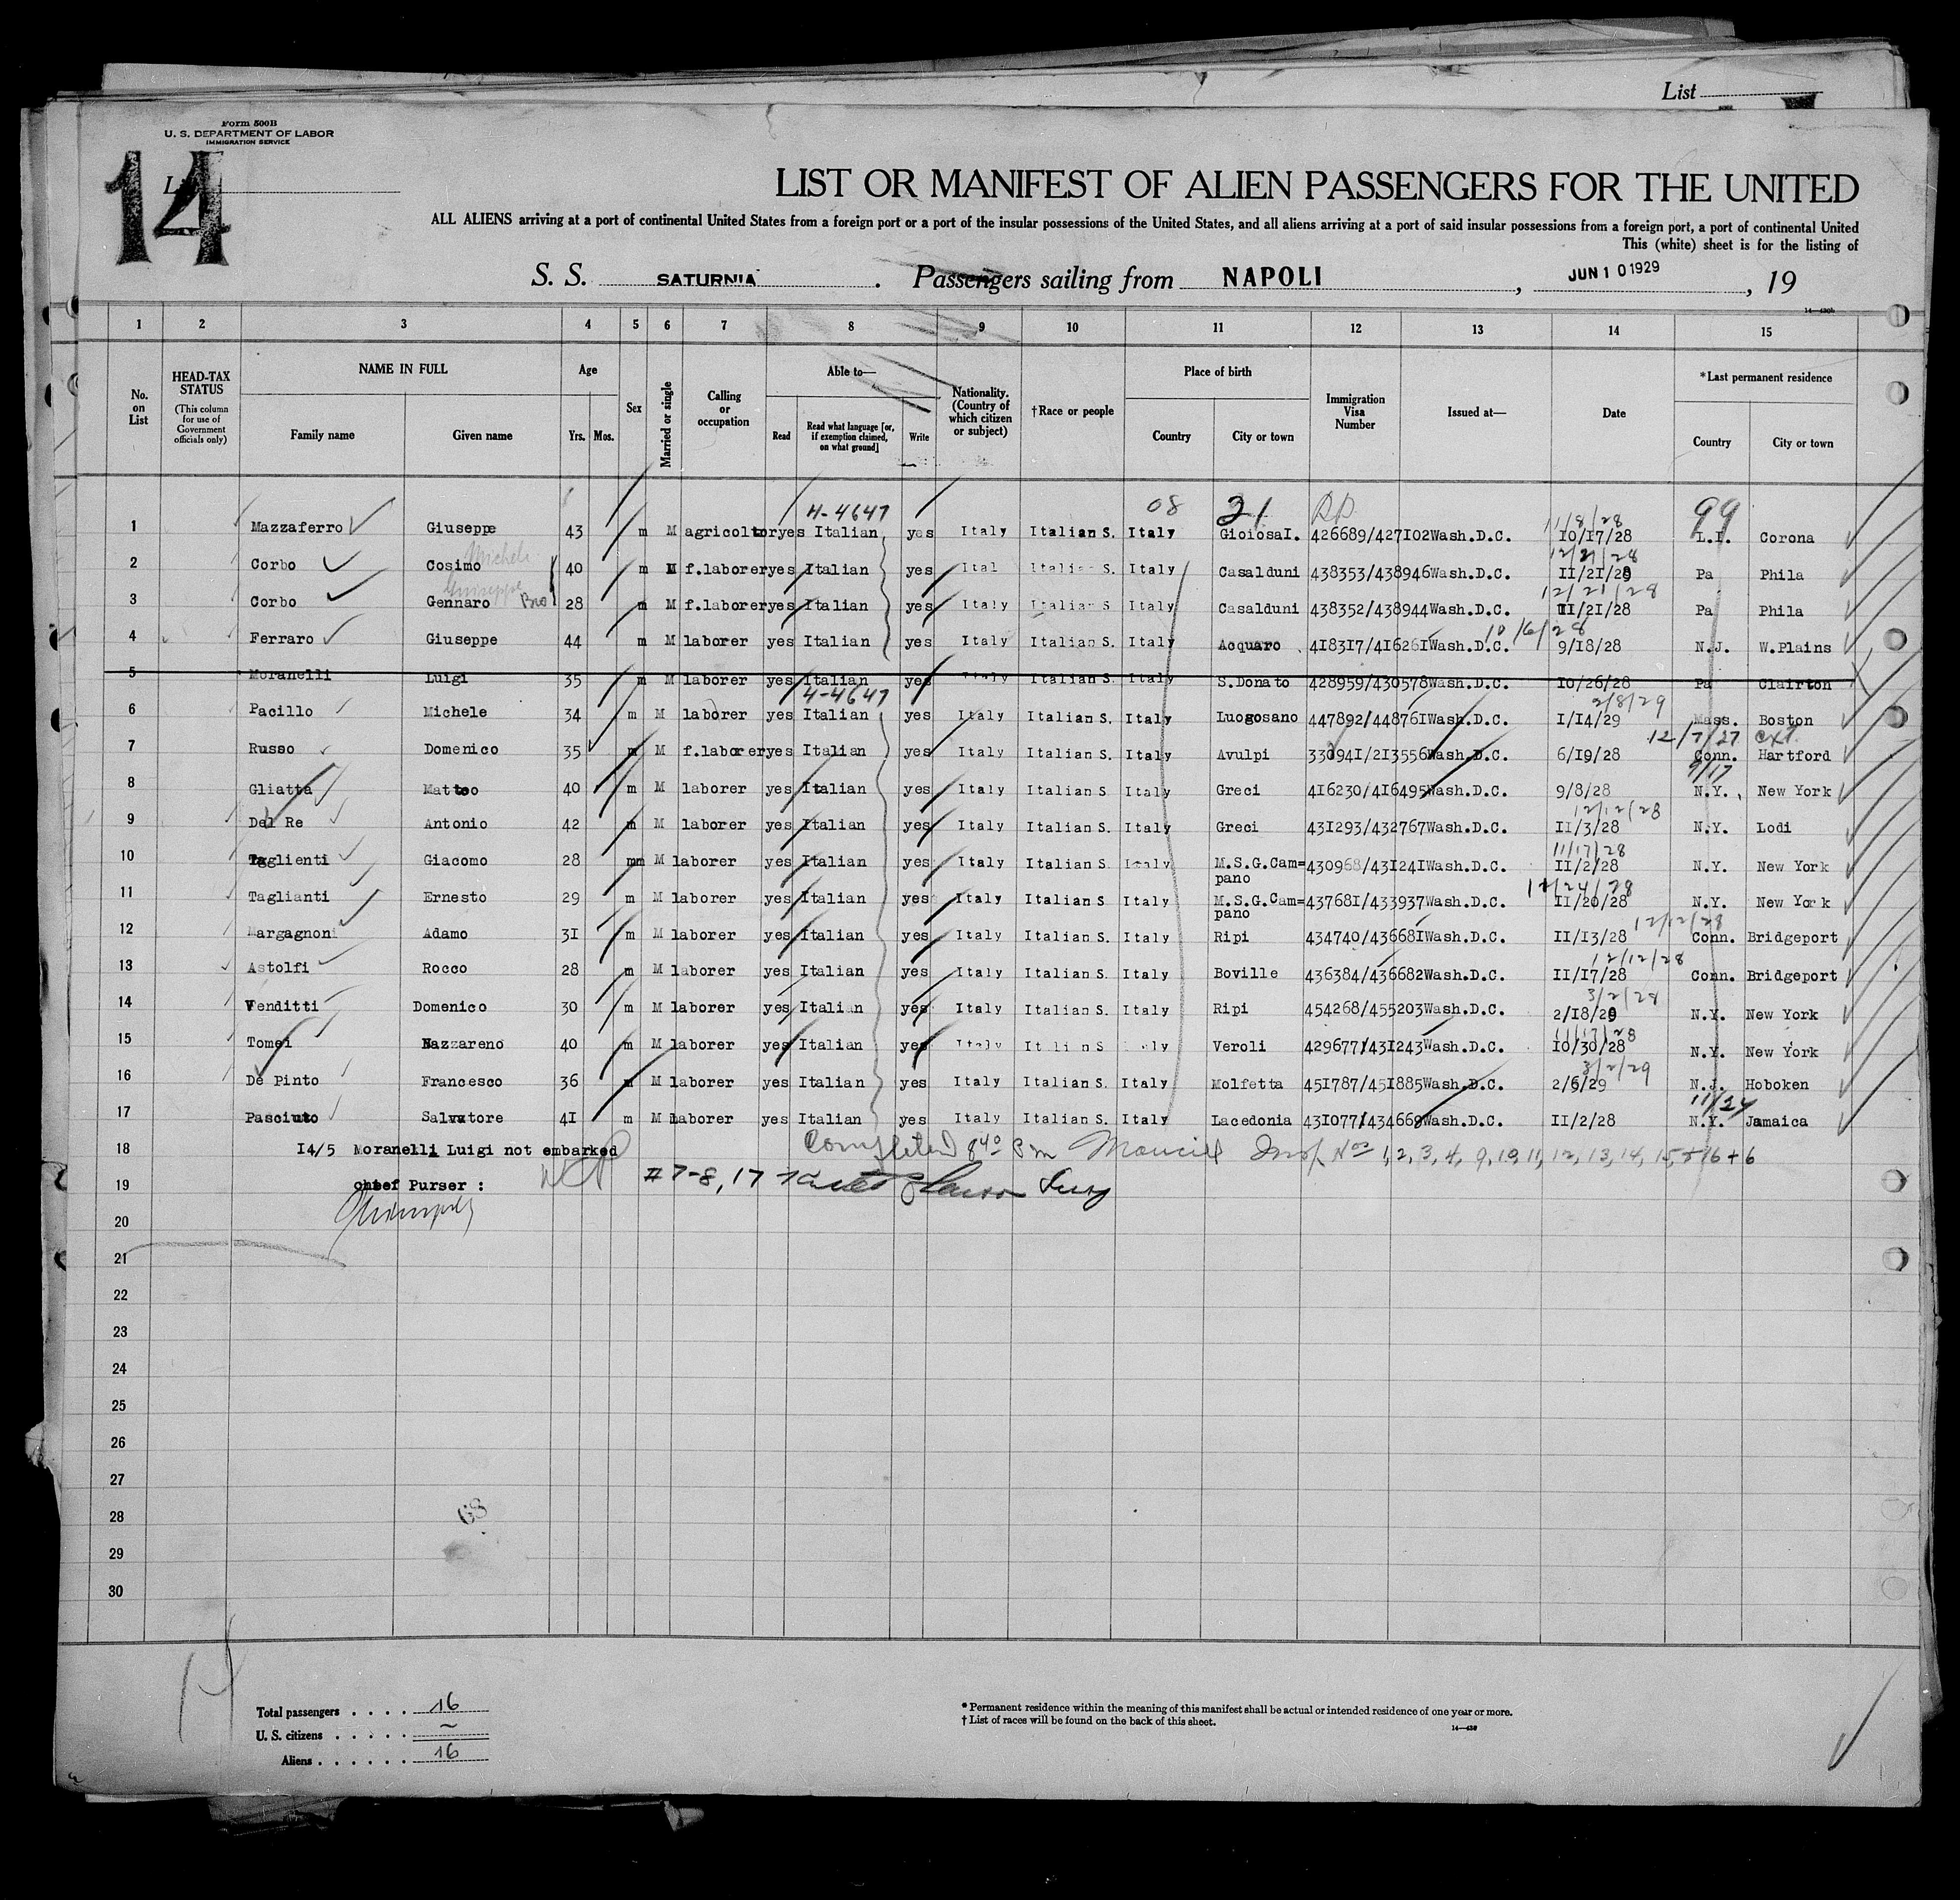 List
Form 500B
U. S. DEPARTMENT OF LABOR
IMMIGRATION SERVICE
14
List
LIST OR MANIFEST OF ALIEN PASSENGERS FOR THE UNITED
ALL ALIENS arriving at a port of continental United States from a foreign port or a port of the insular possessions of the United States, and all aliens arriving at a port of said insular possessions from a foreign port, a port of continental United
This (white) sheet is for the listing of
S. S. SATURNIA . Passengers sailing from NAPOLI , JUN 10 1929 , 19
1 2 3 4 5 6 7 8 9 10 11 12 13 14 15
No. on List
HEAD-TAX STATUS (This column for use of Government officials only)
NAME IN FULL Family name Given name
Age Yrs. Mos.
Sex
Married or single
Calling or occupation
Able to— Read Read what language [or, if exemption claimed, on what ground] Write
Nationality. (Country of which citizen or subject)
†Race or people
Place of birth Country City or town
Immigration Visa Number
Issued at—
Date
*Last permanent residence Country City or town
4-4647 08 21 11/8/28 99
1 Mazzaferro Giuseppe 43 m M agricoltor yes Italian yes Italy Italian S. Italy GioiosaI. 426689/427102 Wash.D.C. 10/17/28 L.I. Corona
Michele 12/21/28
2 Corbo Cosimo 40 m M f.laborer yes Italian yes Ital Italian S. Italy Casalduni 438353/438946 Wash.D.C. 11/21/28 Pa Phila
Giuseppe 12/21/28
3 Corbo Gennaro Bro 28 m M f.laborer yes Italian yes Italy Italian S Italy Casalduni 438352/438944 Wash.D.C. 11/21/28 Pa Phila
10/6/28
4 Ferraro Giuseppe 44 m M laborer yes Italian yes Italy Italian S. Italy Acquaro 418317/416261 Wash.D.C. 9/18/28 N.J. W.Plains
5 Moranelli Luigi 35 m M laborer yes Italian yes Italy Italian S. Italy S.Donato 428959/430578 Wash.D.C. 10/26/28 Pa Clairton
4-4647 2/8/29
6 Pacillo Michele 34 m M laborer yes Italian yes Italy Italian S. Italy Luogosano 447892/448761 Wash.D.C. 1/14/29 Mass. Boston
12/7/27 ext.
7 Russo Domenico 35 m M f.laborer yes Italian yes Italy Italian S. Italy Avulpi 330941/213556 Wash.D.C. 6/19/28 Conn. Hartford
9/17
8 Gliatta Matteo 40 m M laborer yes Italian yes Italy Italian S. Italy Greci 416230/416495 Wash.D.C. 9/8/28 N.Y. New York
12/12/28
9 Del Re Antonio 42 m M laborer yes Italian yes Italy Italian S. Italy Greci 431293/432767 Wash.D.C. 11/3/28 N.Y. Lodi
11/17/28
10 Taglienti Giacomo 28 mm M laborer yes Italian yes Italy Italian S. Italy M.S.G.Cam=pano 430968/431241 Wash.D.C. 11/2/28 N.Y. New York
12/24/28
11 Taglianti Ernesto 29 m M laborer yes Italian yes Italy Italian S. Italy M.S.G.Cam=pano 437681/433937 Wash.D.C. 11/20/28 N.Y. New York
12/12/28
12 Margagnoni Adamo 31 m M laborer yes Italian yes Italy Italian S. Italy Ripi 434740/436681 Wash.D.C. 11/13/28 Conn. Bridgeport
12/12/28
13 Astolfi Rocco 28 m M laborer yes Italian yes Italy Italian S. Italy Boville 436384/436682 Wash.D.C. 11/17/28 Conn. Bridgeport
3/2/28
14 Venditti Domenico 30 m M laborer yes Italian yes Italy Italian S. Italy Ripi 454268/455203 Wash.D.C. 2/18/29 N.Y. New York
11/17/28
15 Tomei Nazzareno 40 m M laborer yes Italian yes Italy Italian S Italy Veroli 429677/431243 Wash.D.C. 10/30/28 N.Y. New York
3/2/29
16 De Pinto Francesco 36 m M laborer yes Italian yes Italy Italian S. Italy Molfetta 451787/451885 Wash.D.C. 2/6/29 N.J. Hoboken
11/24
17 Pasciuto Salvatore 41 m M laborer yes Italian yes Italy Italian S. Italy Lacedonia 431077/434669 Wash.D.C. 11/2/28 N.Y. Jamaica
18 14/5 Moranelli Luigi not embarked Completed 8 40 Pm Insp. Nos 1, 2, 3, 4, 9, 10, 11, 12, 13, 14, 15, + 16 + 6
19 chief Purser : #7-8, 17
20
21
22
23
24
25
26
27
28
68
29
30
Total passengers . . . . 16
U. S. citizens . . . . . ~
Aliens . . . . . . 16
* Permanent residence within the meaning of this manifest shall be actual or intended residence of one year or more.
† List of races will be found on the back of this sheet.